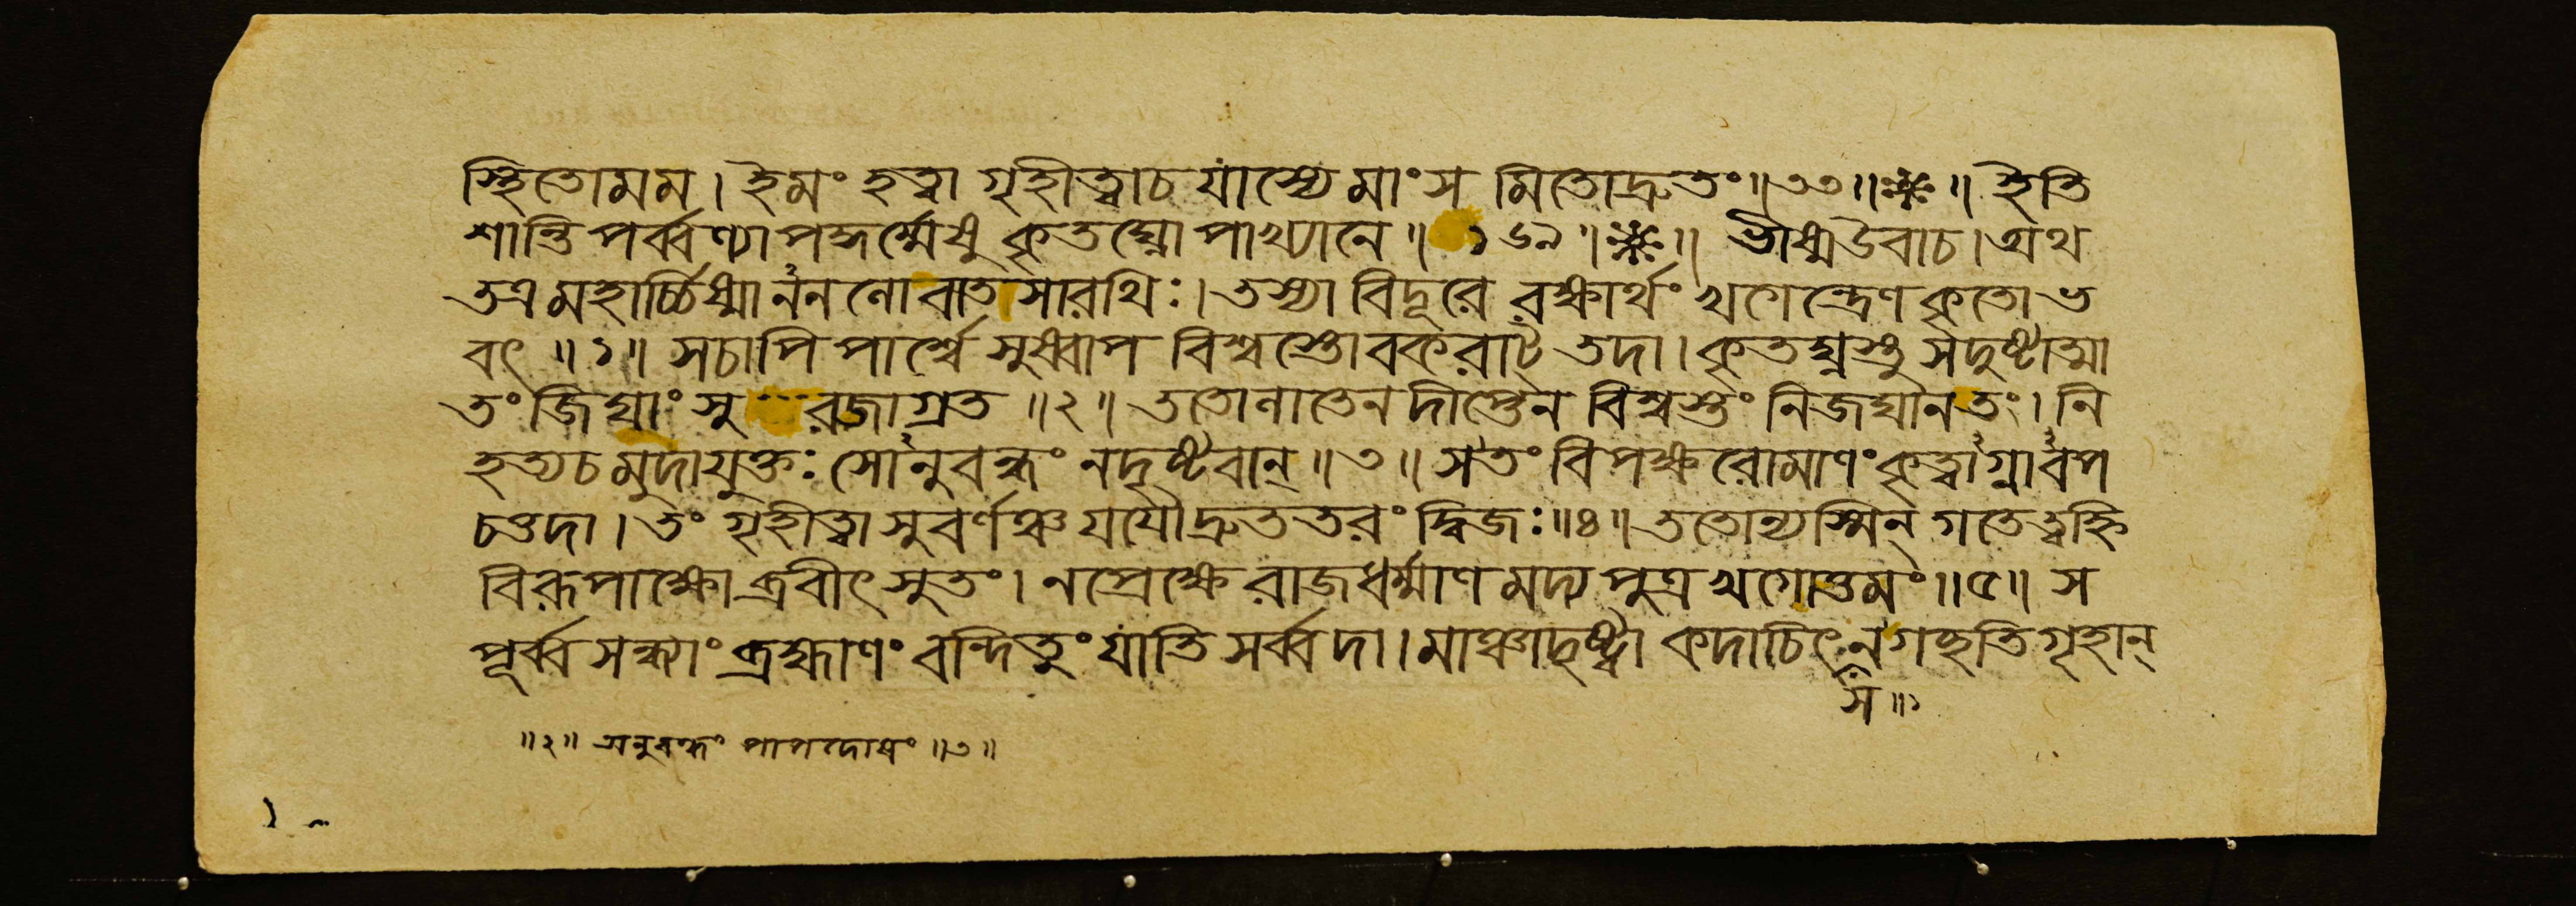 স্থিতোমম। ইমং হত্বা গৃহীত্বাচ যাস্যেমাংস মিতোদ্রুতং॥৩৩॥❈॥ ইতি
শান্তি পর্ব্বণ্যাপদ্ধর্ম্মেষু কৃতঘ্নোপাখ্যানে॥ ১৬৯॥❈॥ ভীষ্মউবাচ।অথ
তত্রমহার্চ্চিষ্মাননলোবাতসারথিঃ।তস্যাবিদূরে রক্ষার্থং খগেন্দ্রেণকৃতোভ
বৎ॥১॥ সচাপি পার্শ্বে সুষ্বাপ বিশ্বস্তোবকরাট্ তদা। কৃতঘ্নস্তু সদুষ্টাত্মা
তং জিঘাংসু রজাগ্রত॥২॥ ততোলাতেনদীপ্তেন বিশ্বস্তং নিজঘানতং। নি
হত্যচমুদাযুক্তঃ সোনুবন্ধং নদৃষ্টবান্॥৩॥ সতং বিপক্ষরোমাণং কৃত্বাগ্নাবপ
চত্তদা। তং গৃহীত্বা সুবর্ণঞ্চ যযৌদ্রুততরং দ্বিজঃ॥৪॥ ততোন্যস্মিন্ গতেহ্নি
বিরূপাক্ষোব্রবীৎসুতং। নপ্রেক্ষে রাজধর্ম্মাণমদ্য পুত্র খগোত্তমং॥৫॥ স
পূর্ব্বসন্ধ্যাং ব্রহ্মাণং বন্দিতুং যাতি সর্ব্বদা। মাঞ্চাদৃষ্ট্বা কদাচিৎ নগচ্ছতি গৃহান্
স॥১
॥২॥ অনুবন্ধং পাপদোষং॥৩॥